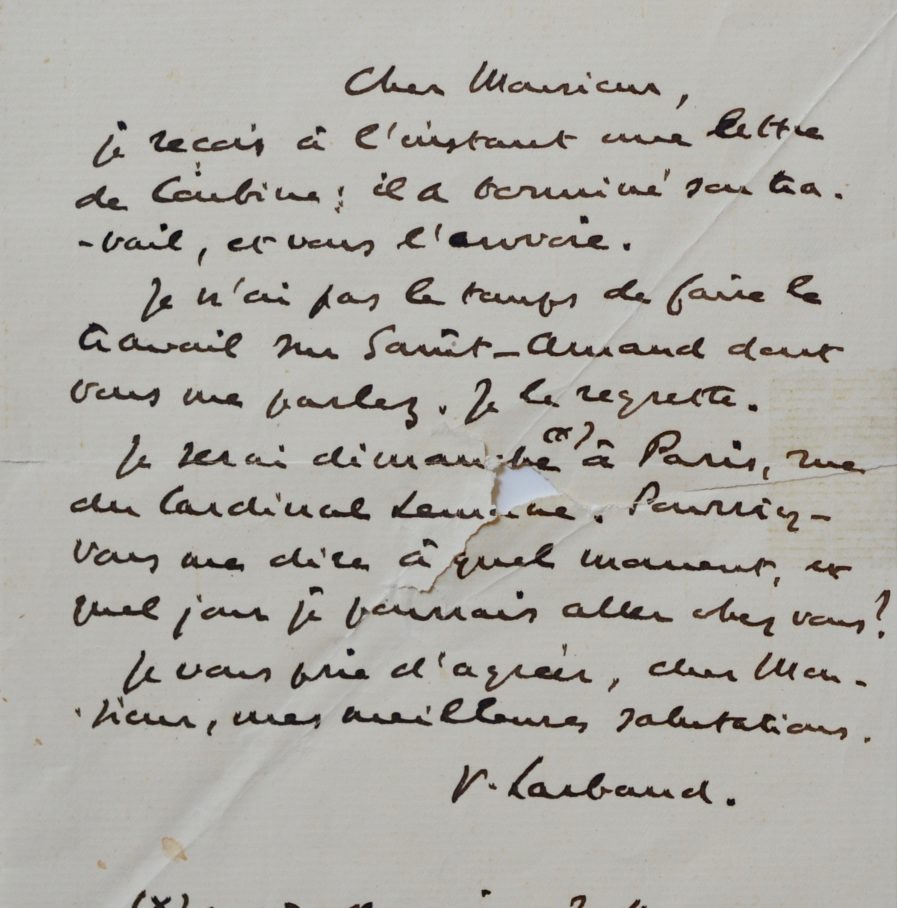 Cher Monsieur,
je reçois à l'instant une lettre
de : il a terminé son tra-
-vail, et vous l'envoie.
Je n'ai pas le temps de faire le
travail sur Saint-Amand dont
vous me parlez. Je le regrette.
Je serai dimanche (x) à Paris, rue
du Cardinal Lemoine. Pourriez-
vous me dire à quel moment, et
quel jour je pourrais aller chez vous?
Je vous prie d'agréer, cher Mon-
-sieur, mes meilleures salutations.
V. Larbaud.
(x)